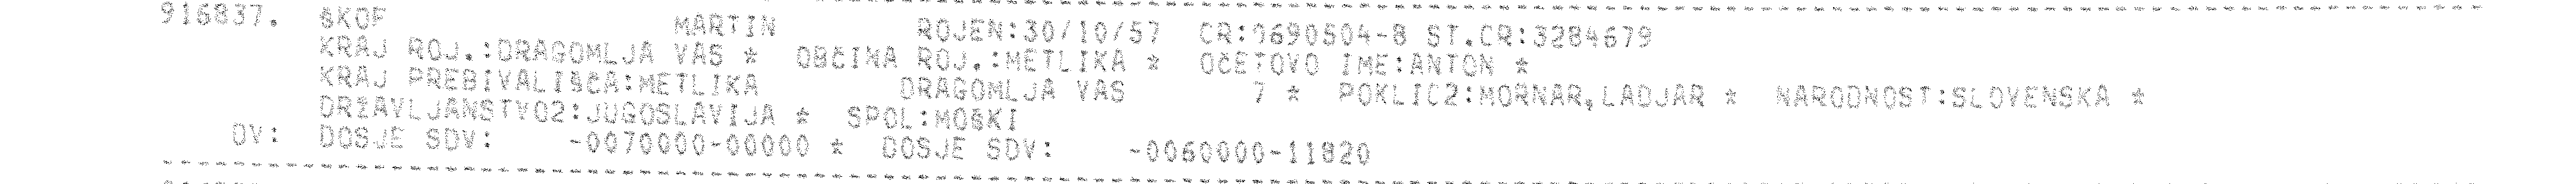 916837. ŠKOF MARTIN ROJEN:30/10/57 CR:0690504-8 ST.CR:3284679
KRAJ ROJ.:DRAGOMLJA VAS * OBČINA ROJ.:METLIKA * OČETOVO IME:ANTON *
KRAJ PREBIVALIŠČA:METLIKA DRAGOMLJA VAS 7 * POKLIC2:MORNAR,LADJAR * NARODNOST:SLOVENSKA *
DRŽAVLJANSTVO2:JUGOSLAVIJA * SPOL:MOŠKI
OV: DOSJE SDV: -0070000-00000 * DOSJE SDV: -0060000-11820